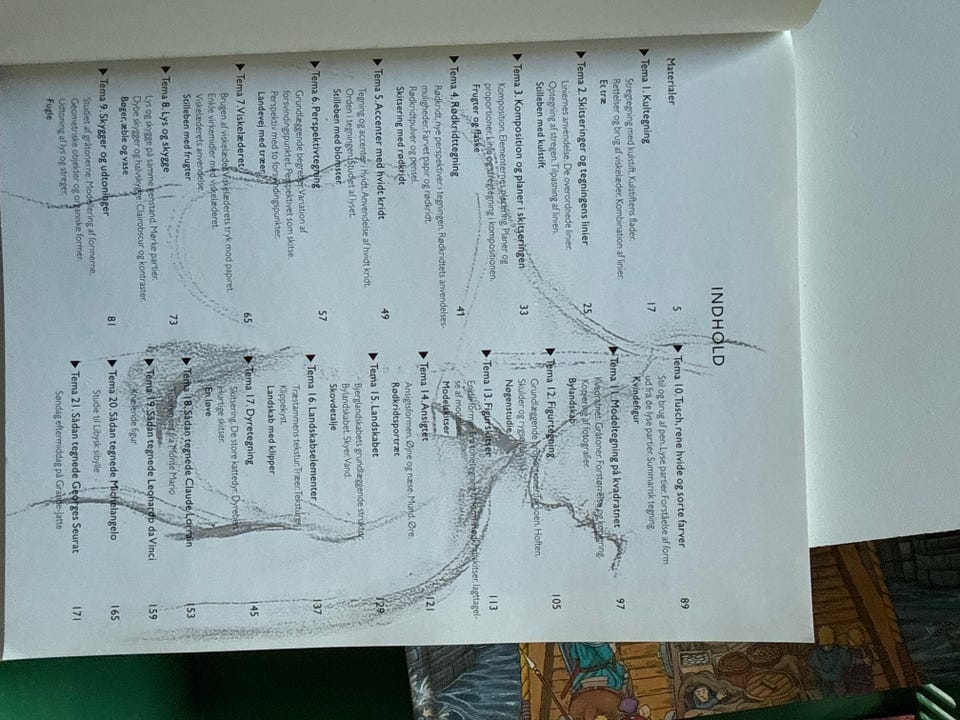 INDHOLD
Materialer 5
▶ Tema 1. Kultegning 17
Stregtegning med kulstift. Kulstiftens flader.
Rettelser og brug af viskelæder. Kombination af linier.
Et træ
▶ Tema 2. Skitseringer og tegningens linier 25
Liniernes anvendelse. De overordnede linier.
Optegning af stregen. Tilpasning af linien.
Stilleben med kulstift
▶ Tema 3. Komposition og planer i skitseringen 33
Komposition. Elementernes placering. Planer og
proportioner. Linie og stregtegning i kompositionen.
Frugter og flaske
▶ Tema 4. Rødkridttegning 41
Rødkridt, nye perspektiver i tegningen. Rødkridtets anvendelses-
muligheder. Farvet papir og rødkridt.
Rødkridtpulver og pensel.
Skitsering med rødkridt
▶ Tema 5. Accenter med hvidt kridt 49
Tegning og accenter i hvidt. Anvendelse af hvidt kridt.
Orden i tegningen. Studiet af lyset.
Stilleben med blomster
▶ Tema 6. Perspektivtegning 57
Grundlæggende begreber. Variation af
forsvindingspunktet. Perspektivet som skitse.
Perspektiv med to forsvindingspunkter.
Landevej med træer
▶ Tema 7. Viskelæderet 65
Brugen af viskelæder. Viskelæderets tryk mod papiret.
Enkle virkemidler med viskelæderet.
Viskelæderets anvendelse.
Stilleben med frugter
▶ Tema 8. Lys og skygge 73
Lys og skygge på samme genstand. Mørke partier.
Dybe skygger og halvskygge. Clairobscur og kontraster.
Bøger, æble og vase
▶ Tema 9. Skygger og udtoninger 81
Studiet af gråtonerne. Modellering af formerne.
Geometriske objekter og organiske former.
Udtoning af lys og streger.
Fugle
▶ Tema 10. Tusch, rene hvide og sorte farver 89
Stil og brug af pen. Lyse partier. Forståelse af form
ud fra de lyse partier. Summarisk tegning.
Kvindefigur
▶ Tema 11. Modeltegning på kvadratnet 97
Kvadratnet. Gråtoner. Forstørrelse og kopiering.
Kopiering af fotografier.
Bylandskab
▶ Tema 12. Figurtegning 105
Grundlæggende proportioner. Torsoen. Hoften.
Skulder og ryg.
Nøgenstudie
▶ Tema 13. Figurskitser 113
iagttagel-
Modelskitser
▶ Tema 14. Ansigtet 121
Ansigtsformen. Øjne og næse. Mund. Øre.
Rødkridtsportræt
▶ Tema 15. Landskabet 129
Bjerglandskabets grundlæggende struktur.
Bylandskabet. Skyer. Vand.
Skovdetalje
▶ Tema 16. Landskabselementer 137
Træstammens tekstur. Træer. Teksturer.
Klippekyst.
Landskab med klipper
▶ Tema 17. Dyretegning 45
Skitsering. De store kattedyr. Dyreben.
Hurtige skitser.
En løve
▶ Tema 18. Sådan tegnede Claude Lorrain 153
Monte Mario
▶ Tema 19. Sådan tegnede Leonardo da Vinci 159
Knælende figur
▶ Tema 20. Sådan tegnede Michelangelo 165
Studie til Libysk sibylle
▶ Tema 21. Sådan tegnede Georges Seurat 171
Søndag eftermiddag på Grande-Jatte